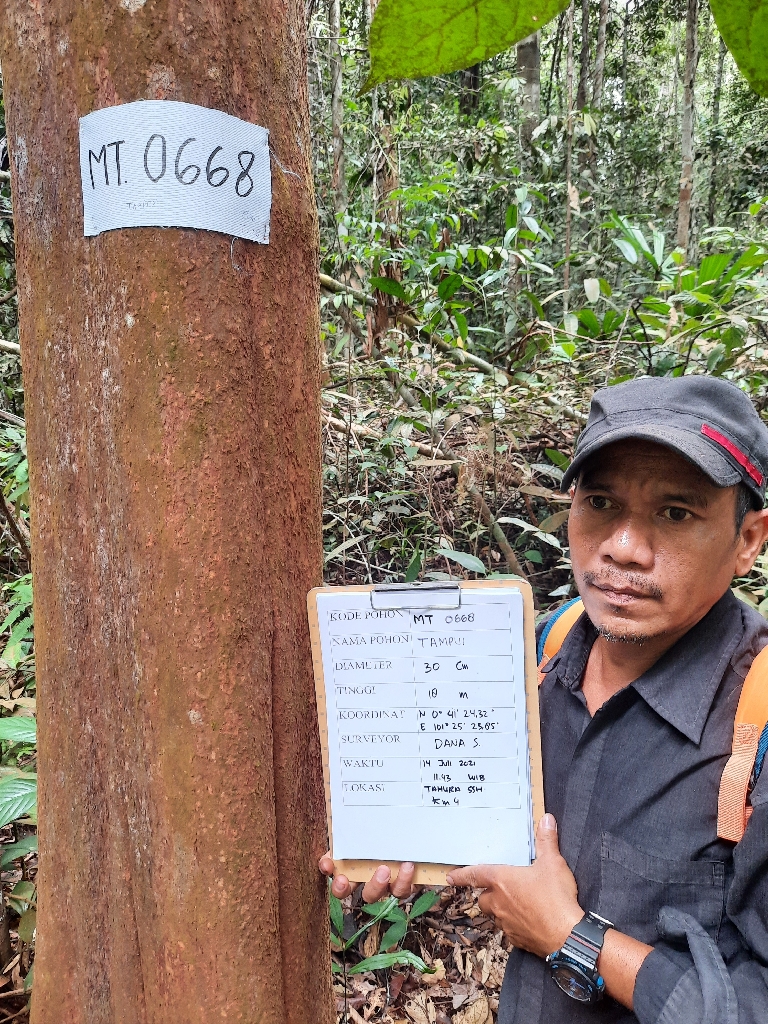 MT. 0668
TAMPUI
KODE POHON MT 0668
NAMA POHON TAMPUI
DIAMETER 30 Cm
TINGGI 18 m
KOORDINAT N 0° 41' 24,32"
E 101° 25' 23.65"
SURVEYOR DANA S.
WAKTU 14 Juli 2021
11.43 WIB
LOKASI TAHURA SSH
Km 4